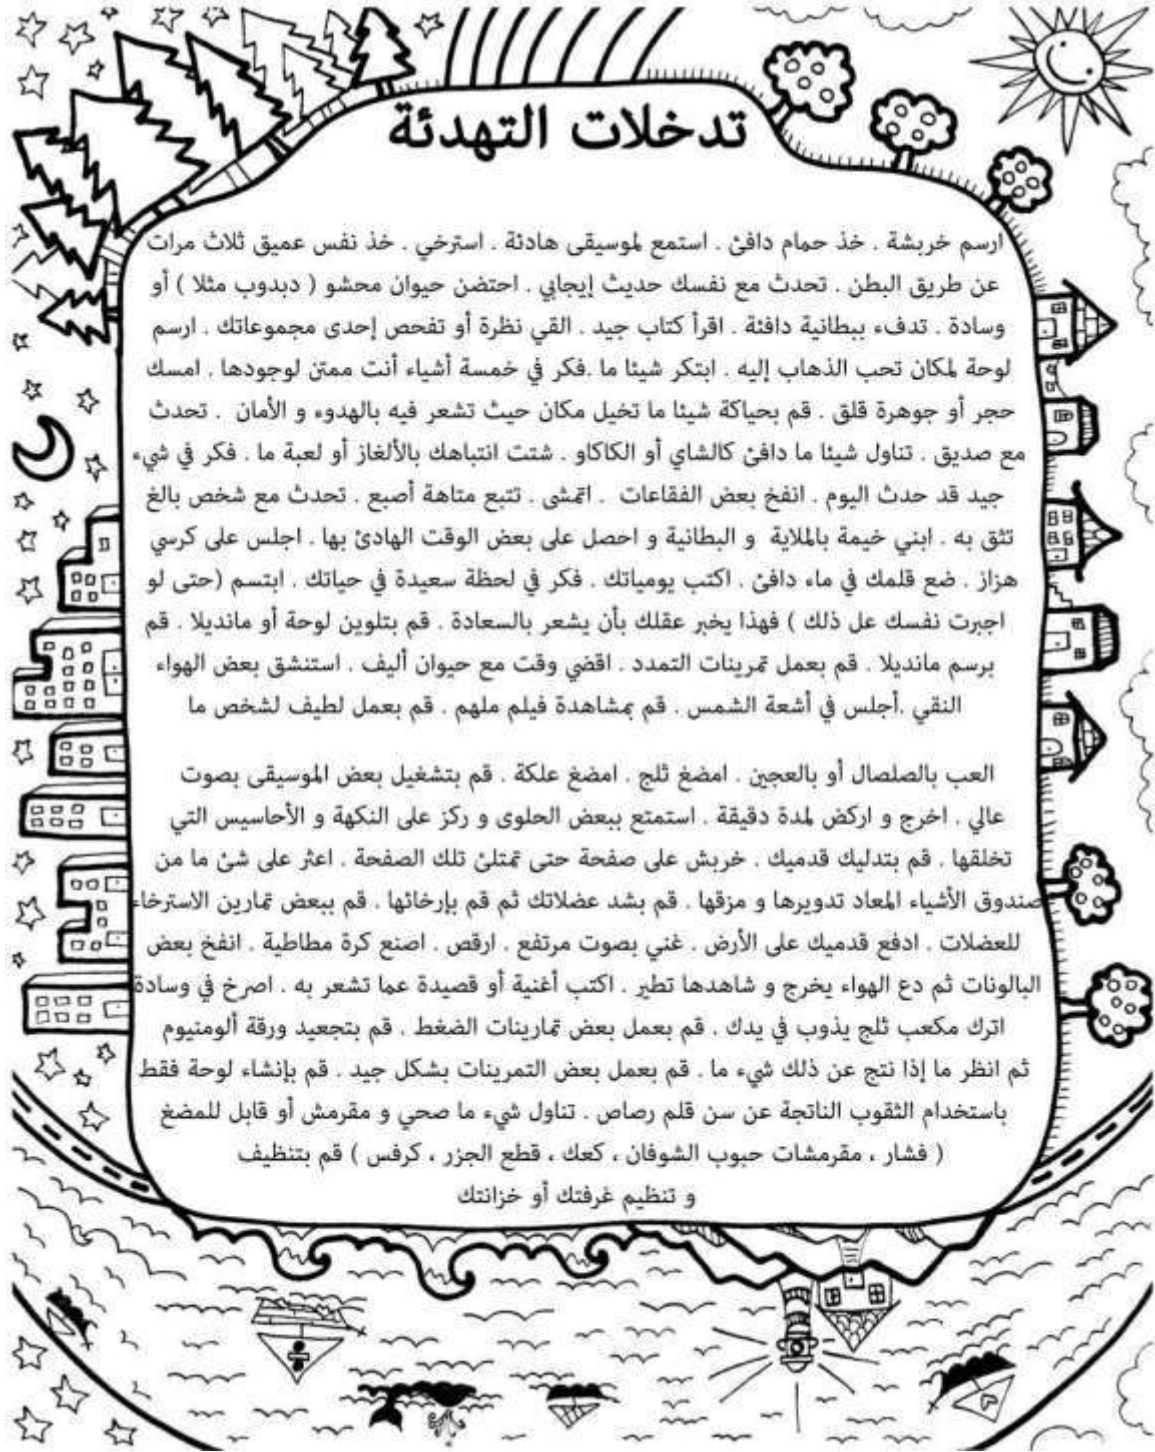 تدخلات التهدئة
ارسم خربشة . خذ حمام دافئ . استمع لموسيقى هادئة . استرخي . خذ نفس عميق ثلاث مرات
عن طريق البطن . تحدث مع نفسك حديث إيجابي . احتضن حيوان محشو ( دبدوب مثلا ) أو
وسادة . تدفء ببطانية دافئة . اقرأ كتاب جيد . القي نظرة أو تفحص إحدى مجموعاتك . ارسم
لوحة لمكان تحب الذهاب إليه . ابتكر شيئا ما .فكر في خمسة أشياء أنت ممتن لوجودها . امسك
حجر أو جوهرة قلق . قم بحياكة شيئا ما تخيل مكان حيث تشعر فيه بالهدوء و الأمان . تحدث
مع صديق . تناول شيئا ما دافئ كالشاي أو الكاكاو . شتت انتباهك بالألغاز أو لعبة ما . فكر في شيء
جيد قد حدث اليوم . انفخ بعض الفقاعات . اتمشى . تتبع متاهة أصبع . تحدث مع شخص بالغ
تثق به . ابني خيمة بالملاية و البطانية و احصل على بعض الوقت الهادئ بها . اجلس على كرسي
هزاز . ضع قلمك في ماء دافئ . اكتب يومياتك . فكر في لحظة سعيدة في حياتك . ابتسم (حتى لو
اجبرت نفسك عل ذلك ) فهذا يخبر عقلك بأن يشعر بالسعادة . قم بتلوين لوحة أو مانديلا . قم
برسم مانديلا . قم بعمل تمرينات التمدد . اقضي وقت مع حيوان أليف . استنشق بعض الهواء
النقي .أجلس في أشعة الشمس . قم بمشاهدة فيلم ملهم . قم بعمل لطيف لشخص ما
العب بالصلصال أو بالعجين . امضغ ثلج . امضغ علكة . قم بتشغيل بعض الموسيقى بصوت
عالي . اخرج و اركض لمدة دقيقة . استمتع ببعض الحلوى و ركز على النكهة و الأحاسيس التي
تخلقها . قم بتدليك قدميك . خربش على صفحة حتى تمتلئ تلك الصفحة . اعثر على شئ ما من
صندوق الأشياء المعاد تدويرها و مزقها . قم بشد عضلاتك ثم قم بإرخائها . قم ببعض تمارين الاسترخاء
للعضلات . ادفع قدميك على الأرض . غني بصوت مرتفع . ارقص . اصنع كرة مطاطية . انفخ بعض
البالونات ثم دع الهواء يخرج و شاهدها تطير . اكتب أغنية أو قصيدة عما تشعر به . اصرخ في وسادة
اترك مكعب ثلج يذوب في يدك . قم بعمل بعض تمارينات الضغط . قم بتجعيد ورقة ألومنيوم
ثم انظر ما إذا نتج عن ذلك شيء ما . قم بعمل بعض التمرينات بشكل جيد . قم بإنشاء لوحة فقط
باستخدام الثقوب الناتجة عن سن قلم رصاص . تناول شيء ما صحي و مقرمش أو قابل للمضغ
( فشار ، مقرمشات حبوب الشوفان ، كعك ، قطع الجزر ، كرفس ) قم بتنظيف
و تنظيم غرفتك أو خزانتك